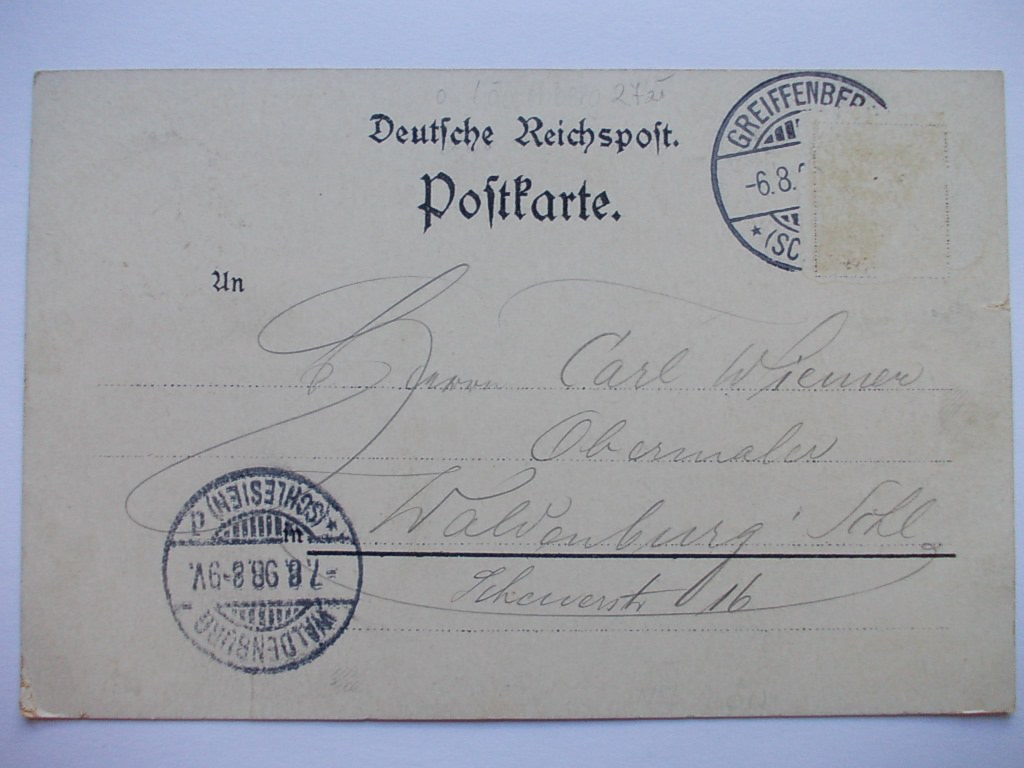 27
Deutsche Reichspost.
Postkarte.
GREIFFENBER
-6.8.
* (SC
An
Herrn Carl Wiemer
Obermaler
Waldenburg Schl
Scheuerstr 16
WALDENBURG
-7.8.98.8-9V.
*(SCHLESIEN)